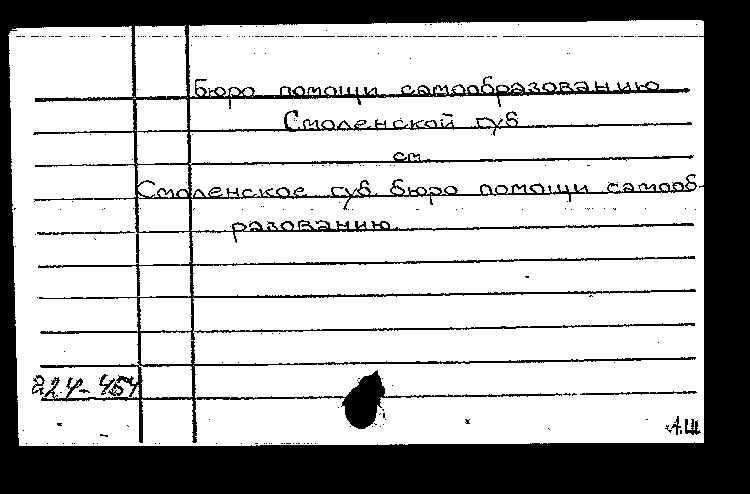 бюро помощи самообразованию
Смоленской губ
см
Смоленское губ бюро помощи самооб-
разованию.
224-454
А.Ш